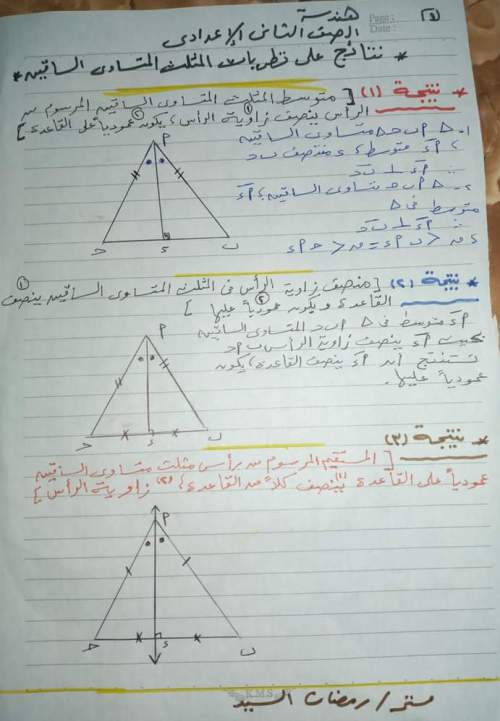 هندسة
(٦)
Page :
Date :
الصف الثانى الإعدادى
* نتائج على نظريات المثلث المتساوى الساقين *
* نتيجة (١) [ متوسط المثلث المتساوى الساقين المرسوم من
الرأس ① ينصف زاوية الرأس ، ② يكون عمودياً على القاعدة ]
١- Δ أ ب ح متساوى الساقين
، أء متوسط ، ء منتصف ب ح
∴ أء ⊥ ب ح
٢- Δ أ ب ح متساوى الساقين ، أء
متوسط فى Δ
∴ أء ⊥ ب ح
، ق < ب أ ء = ق < ح أ ء
أ
ح ء ب
* نتيجة (٢) [ منصف زاوية الرأس فى المثلث المتساوى الساقين ① ينصف
القاعدة و ② يكون عمودياً عليها ]
أء متوسط فى Δ أ ب ح المتساوى الساقين
بحيث أء ينصف زاوية الرأس ب أ ح
نستنتج أن أء ينصف القاعدة ، يكون
عمودياً عليها.
أ
ح ء ب
* نتيجة (٣)
[ المستقيم المرسوم من رأس مثلث متساوى الساقين
عمودياً على القاعدة (١) ينصف كلاً من القاعدة ، (٢) زاوية الرأس ]
أ
ح ء ب
K.M.S
مستر / رمضان السيد